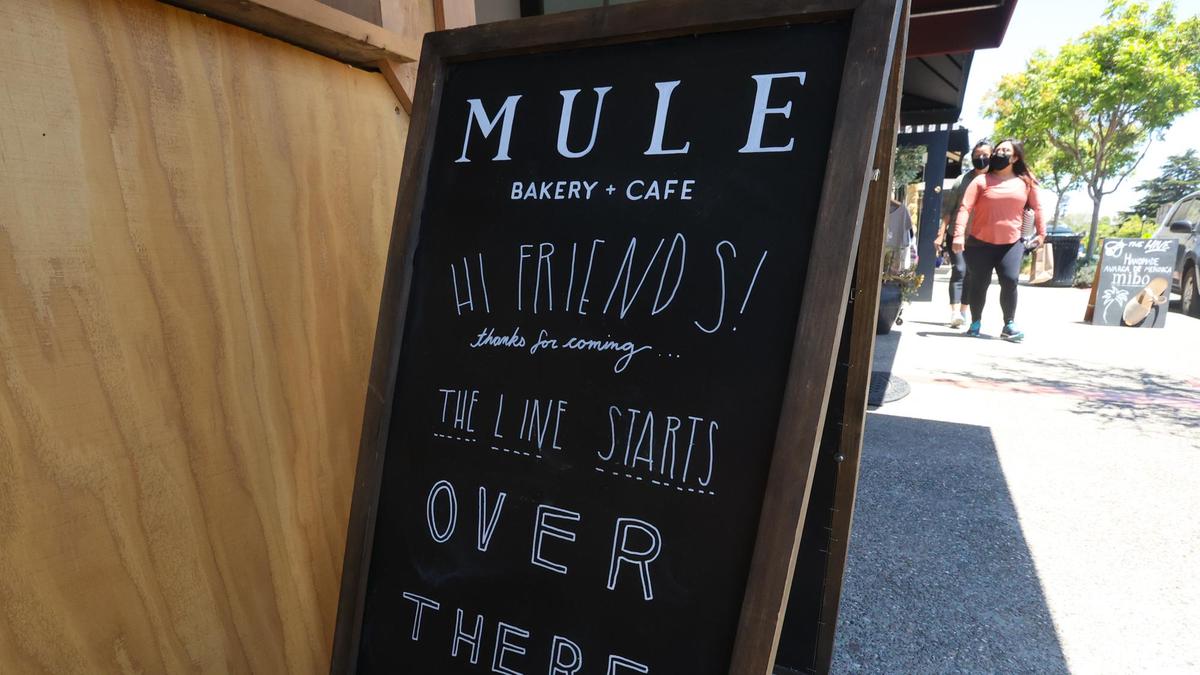 MULE
BAKERY + CAFE
HI FRIENDS!
thanks for coming...
THE LINE STARTS
OVER
THERE
THE HIVE
HANDMADE
AVARCA DE MENORCA
mibo